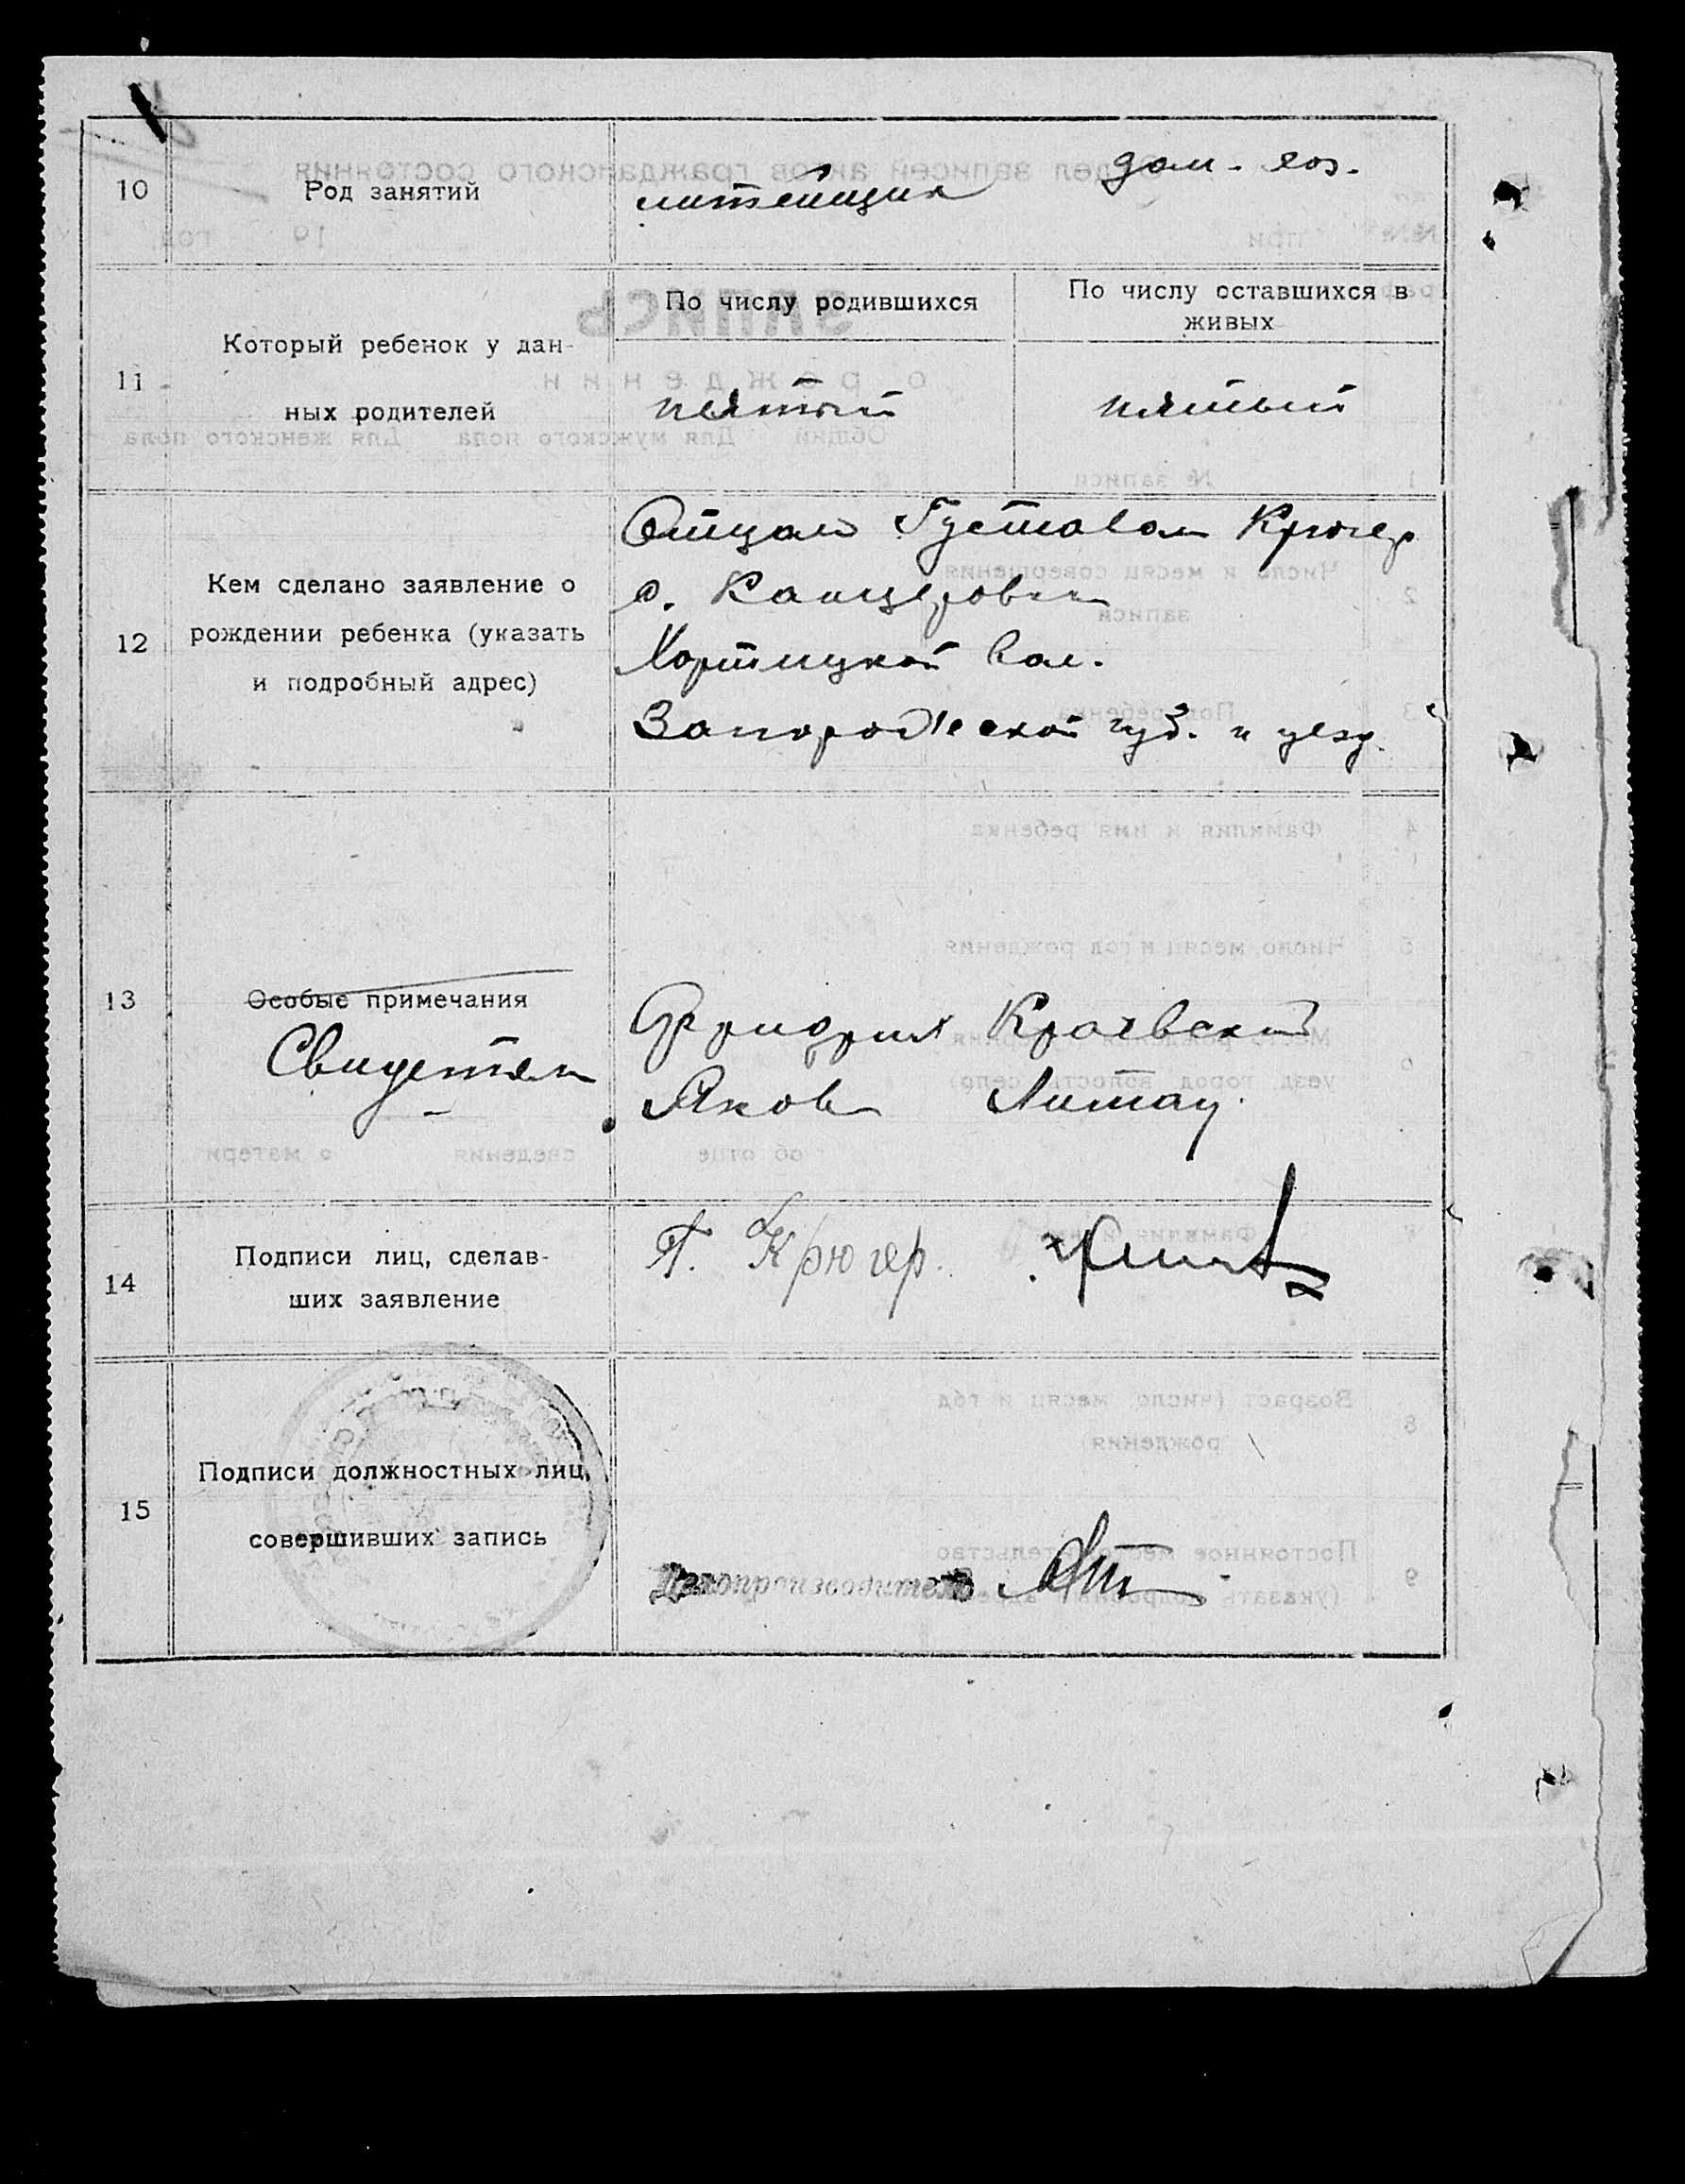 10 Род занятий литейщик дом. хоз.
11 Который ребенок у дан-
ных родителей
По числу родившихся
По числу оставшихся в
живых
пятый пятый
12 Кем сделано заявление о
рождении ребенка (указать
и подробный адрес)
Отцом Густавом Крюгер
с. Канцеровка
Хортицкой вол.
Запорожской губ. и уезд.
13 Особые примечания
Свидетели
Фридрих Краевский
Яков Литау.
14 Подписи лиц, сделав-
ших заявление
Г. Крюгер.
15 Подписи должностных лиц,
совершивших запись
Делопроизводитель